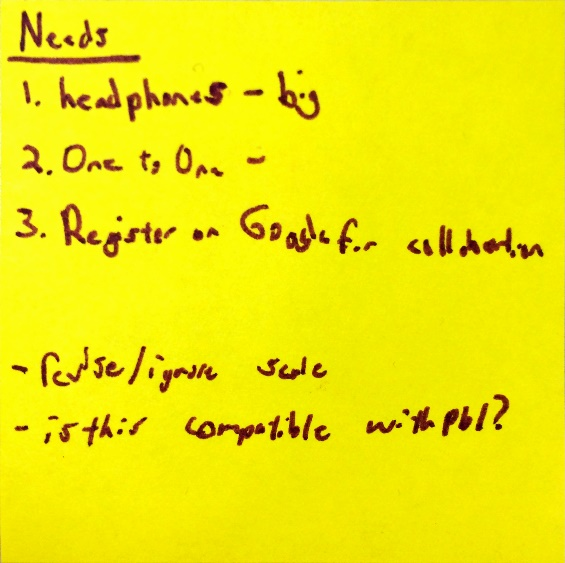 Needs
1. headphones - big
2. One to One -
3. Register on Google for collaboration
- revise/ignore scale
- is this compatible with pbl?